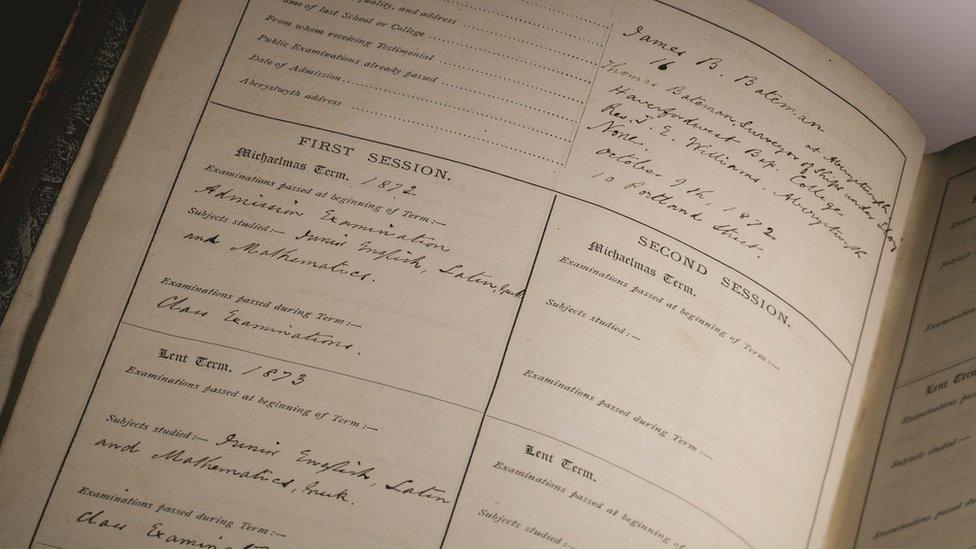 quality, and address
Name of last School or College
From whom receiving Testimonial
Public Examinations already passed
Date of Admission
Aberystwyth address
James B. Bateman
16
at Aberystwyth
Thomas Bateman, Surveyor of Ships under
Haverfordwest Bap. College
Rev. J. E. Williams, Aberystwyth
None.
October 9th, 1872
10 Portland Street.
FIRST SESSION.
Michaelmas Term. 1872
Examinations passed at beginning of Term:—
Admission Examination
Subjects studied:— Junior English, Latin,
and Mathematics.
Examinations passed during Term:—
Class Examinations.
Lent Term. 1873
Examinations passed at beginning of Term:—
Subjects studied:— Junior English, Latin
and Mathematics,
Examinations passed during Term:—
Class
SECOND SESSION.
Michaelmas Term.
Examinations passed at beginning of Term:—
Subjects studied:—
Examinations passed during Term:—
Lent Term.
Examinations passed at beginning of Term:—
Subjects studied:—
Lent Term
Examinations
Subjects studied:—
Examinations